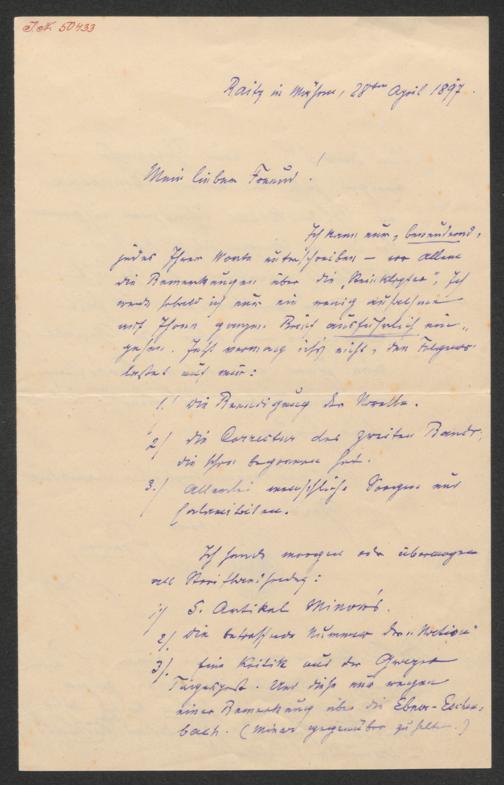 I.N. 50433
Raitz in Mähren, 28ten April 1897.
Mein lieber Freund!
Ich kann nur, bewundernd,
jedes Ihrer Worte unterschreiben — vor allem
die Bemerkungen über die Ich
werde sobald ich nur ein wenig aufathme
auf Ihren ganzen Brief ausführlich ein-
gehen. Jetzt vermag ich's nicht, denn Folgendes
lastet auf mir:
1.) Die Beendigung der Novelle.
2.) Die Correctur des zweiten Bandes,
die schon begonnen hat.
3.) Allerlei menschliche Sorgen und
Calamitäten.
Ich sende morgen oder übermorgen
als
1) 5. Artikel Minor's.
2) Die betreffende Nummer der „Nation"
3) Eine Kritik aus der Grazer
Tagespost. Und diese nur wegen
einer Bemerkung über die Ebner-Eschen-
bach. (Minor gegenüber zu halten.)